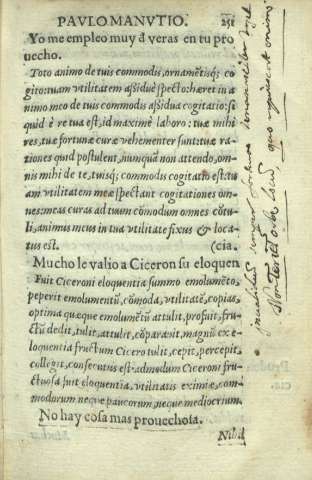 PAVLO MANVTIO. 251
Yo me empleo muy â veras en tu pro
uecho.
Toto animo de tuis commodis, ornamẽtisq; co
gito: tuam vtilitatem aßiduè specto: hæret in a
nimo meo de tuis commodis aßidua cogitatio: si
quid è re tua est, id maximè laboro: tuæ mihi
res, tuæ fortunæ curæ vehementer sunt: tuæ ra-
tiones quid postulent, nunquã non attendo, om-
nis mihi de te, tuisq; commodis cogitatio est: tu
am vtilitatem meæ spectant cogitationes om-
nes: meas curas ad tuum cõmodum omnes cõtu-
li, animus meus in tua vtilitate fixus & loca-
tus est. (cia.
Mucho le valio a Ciceron su eloquen
Fuit Ciceroni eloquentia summo emolumẽto,
peperit emolumentũ, cõmoda, vtilitatẽ, copias,
optima quæque emolumẽta attulit, profuit, fru-
ctũ dedit, tulit, attulit, cõparauit, magnũ ex e-
loquentia fructum Cicero tulit, cepit, percepit,
collegit, consecutus est: admodum Ciceroni fru-
ctuosa fuit eloquentia, vtilitatis eximiæ, com-
modorum neque paucorum, neque mediocrium.
No hay cosa mas prouechosa.
Nihil